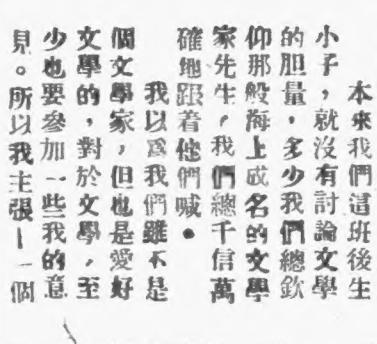 本來我們這班後生
小子，就沒有討論文學
的胆量，多少我們總欽
仰那般海上成名的文學
家先生，我們總千信萬
確地跟着他們喊。
我以爲我們雖不是
個文學家，但也是愛好
文學的，對於文學，至
少也要參加一些我的意
見。所以我主張—一個